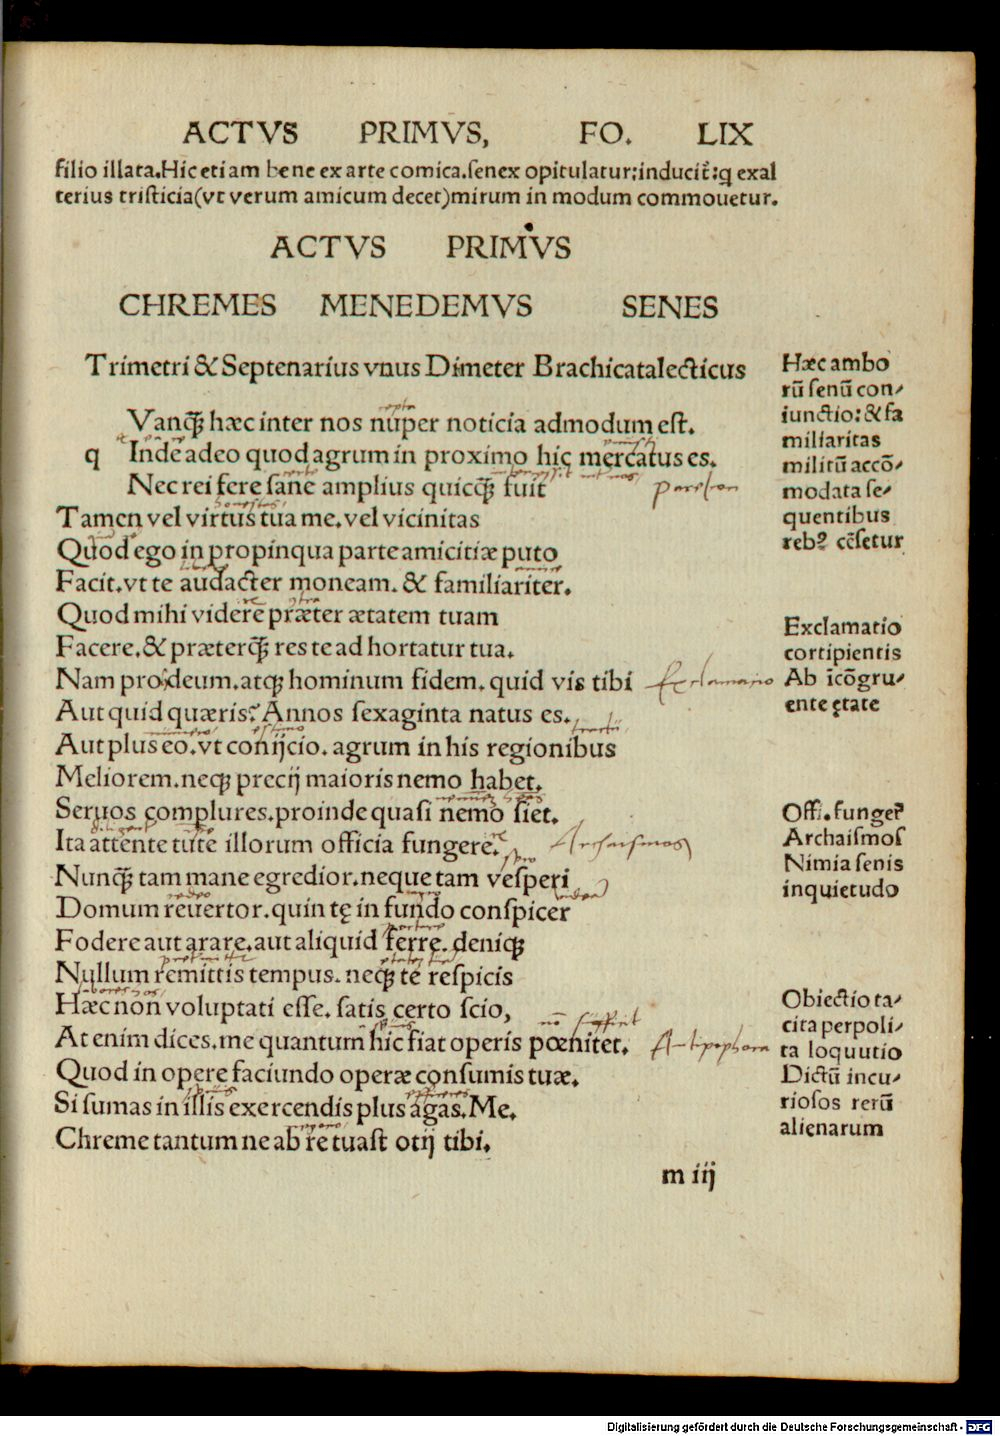 ACTVS PRIMVS, FO. LIX
filio illata. Hic etiam bene ex arte comica. senex opitulatur: inducit̃: ꝙ ex al
terius tristicia (vt verum amicum decet) mirum in modum commouetur.
ACTVS PRIMVS
CHREMES MENEDEMVS SENES
Trimetri & Septenarius vnus Dimeter Brachicatalecticus
Vanꝙ̃ hæc inter nos nuper noticia admodum est.
q Inde adeo quod agrum in proximo hic mercatus es.
Nec rei fere sane amplius quicꝙ̃ fuit
Tamen vel virtus tua me. vel vicinitas
Quod ego in propinqua parte amicitiæ puto
Facit. vt te audacter moneam. & familiariter.
Quod mihi videre præter ætatem tuam
Facere. & præterꝙ̃ res te ad hortatur tua.
Nam pro deum. atqꝫ hominum fidem. quid vis tibi
Exclamatio
Aut quid quæris? Annos sexaginta natus es.
Aut plus eo. vt conijcio. agrum in his regionibus
Meliorem. neqꝫ precij maioris nemo habet.
Seruos complures. proinde quasi nemo siet.
Ita attente tute illorum officia fungere.
Archaismos
Nunꝙ̃ tam mane egredior. neque tam vesperi
Domum reuertor. quin tę in fundo conspicer
Fodere aut arare. aut aliquid ferre. deniqꝫ
Nullum remittis tempus. neqꝫ te respicis
Hæc non voluptati esse. satis certo scio,
At enim dices. me quantum hic fiat operis pœnitet.
Antipophora
Quod in opere faciundo operæ consumis tuæ.
Si sumas in illis exercendis plus agas. Me.
Chreme tantum ne ab re tuast otij tibi.
m iij
Hæc ambo
rũ senũ con-
iunctio: & fa
miliaritas
militũ accõ-
modata se-
quentibus
rebꝰ cẽsetur
Exclamatio
cortipientis
Ab icõgru-
ente ętate
Offi. fungeř
Archaismos
Nimia senis
inquietudo
Obiectio ta-
cita perpoli-
ta loquutio
Dictũ incu-
riosos rerũ
alienarum
Digitalisierung gefördert durch die Deutsche Forschungsgemeinschaft - DFG